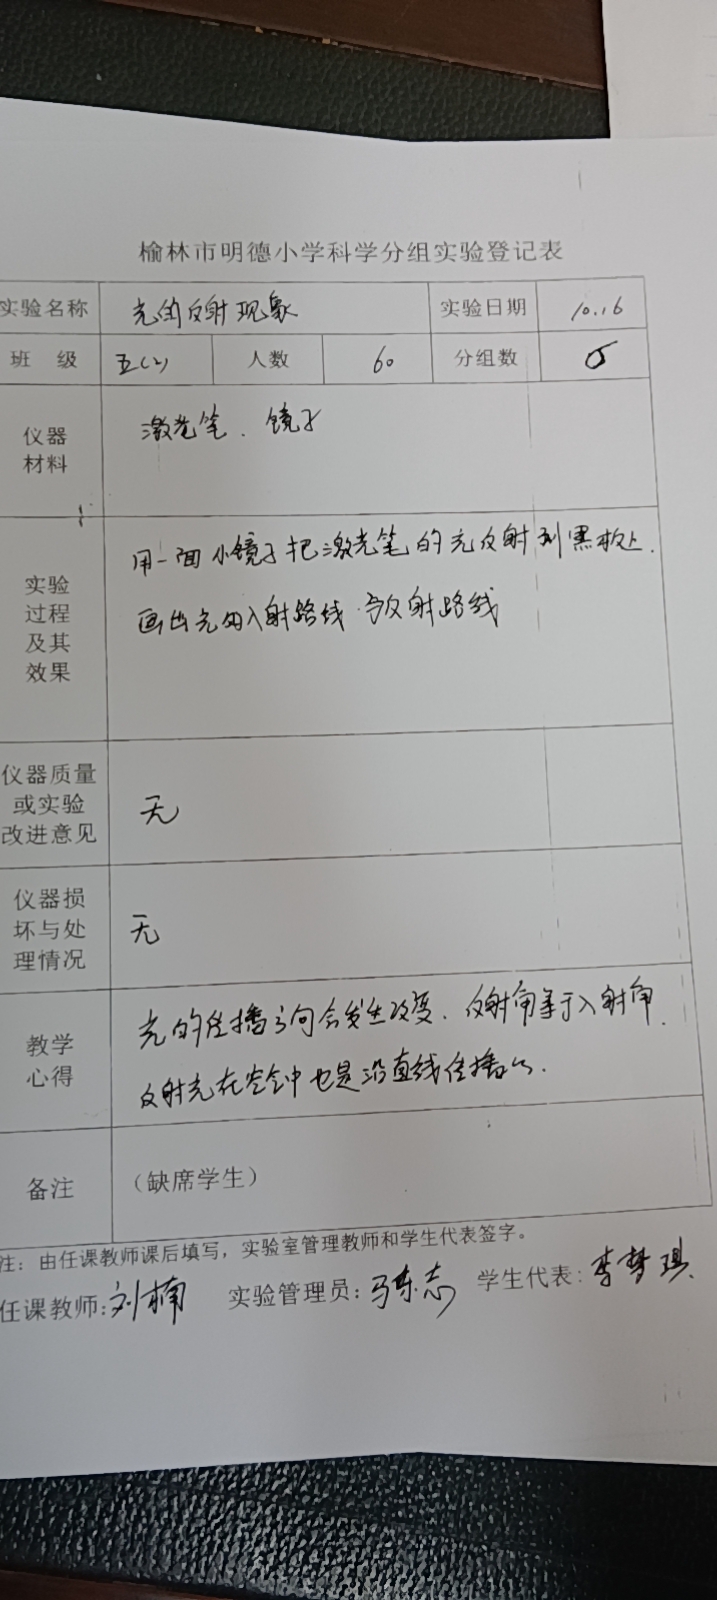 榆林市明德小学科学分组实验登记表
实验名称 光的反射现象 实验日期 10.16
班 级 五(2) 人数 60 分组数 5
仪器
材料
激光笔、镜子
实验
过程
及其
效果
用一面小镜子把激光笔的光反射到黑板上.
画出光的入射路线与反射路线
仪器质量
或实验
改进意见
无
仪器损
坏与处
理情况
无
教学
心得
光的传播方向会发生改变、反射角等于入射角.
反射光在空气中也是沿直线传播的.
备注
（缺席学生）
注：由任课教师课后填写，实验室管理教师和学生代表签字。
任课教师:刘楠 实验管理员:马东志 学生代表:李梦琪